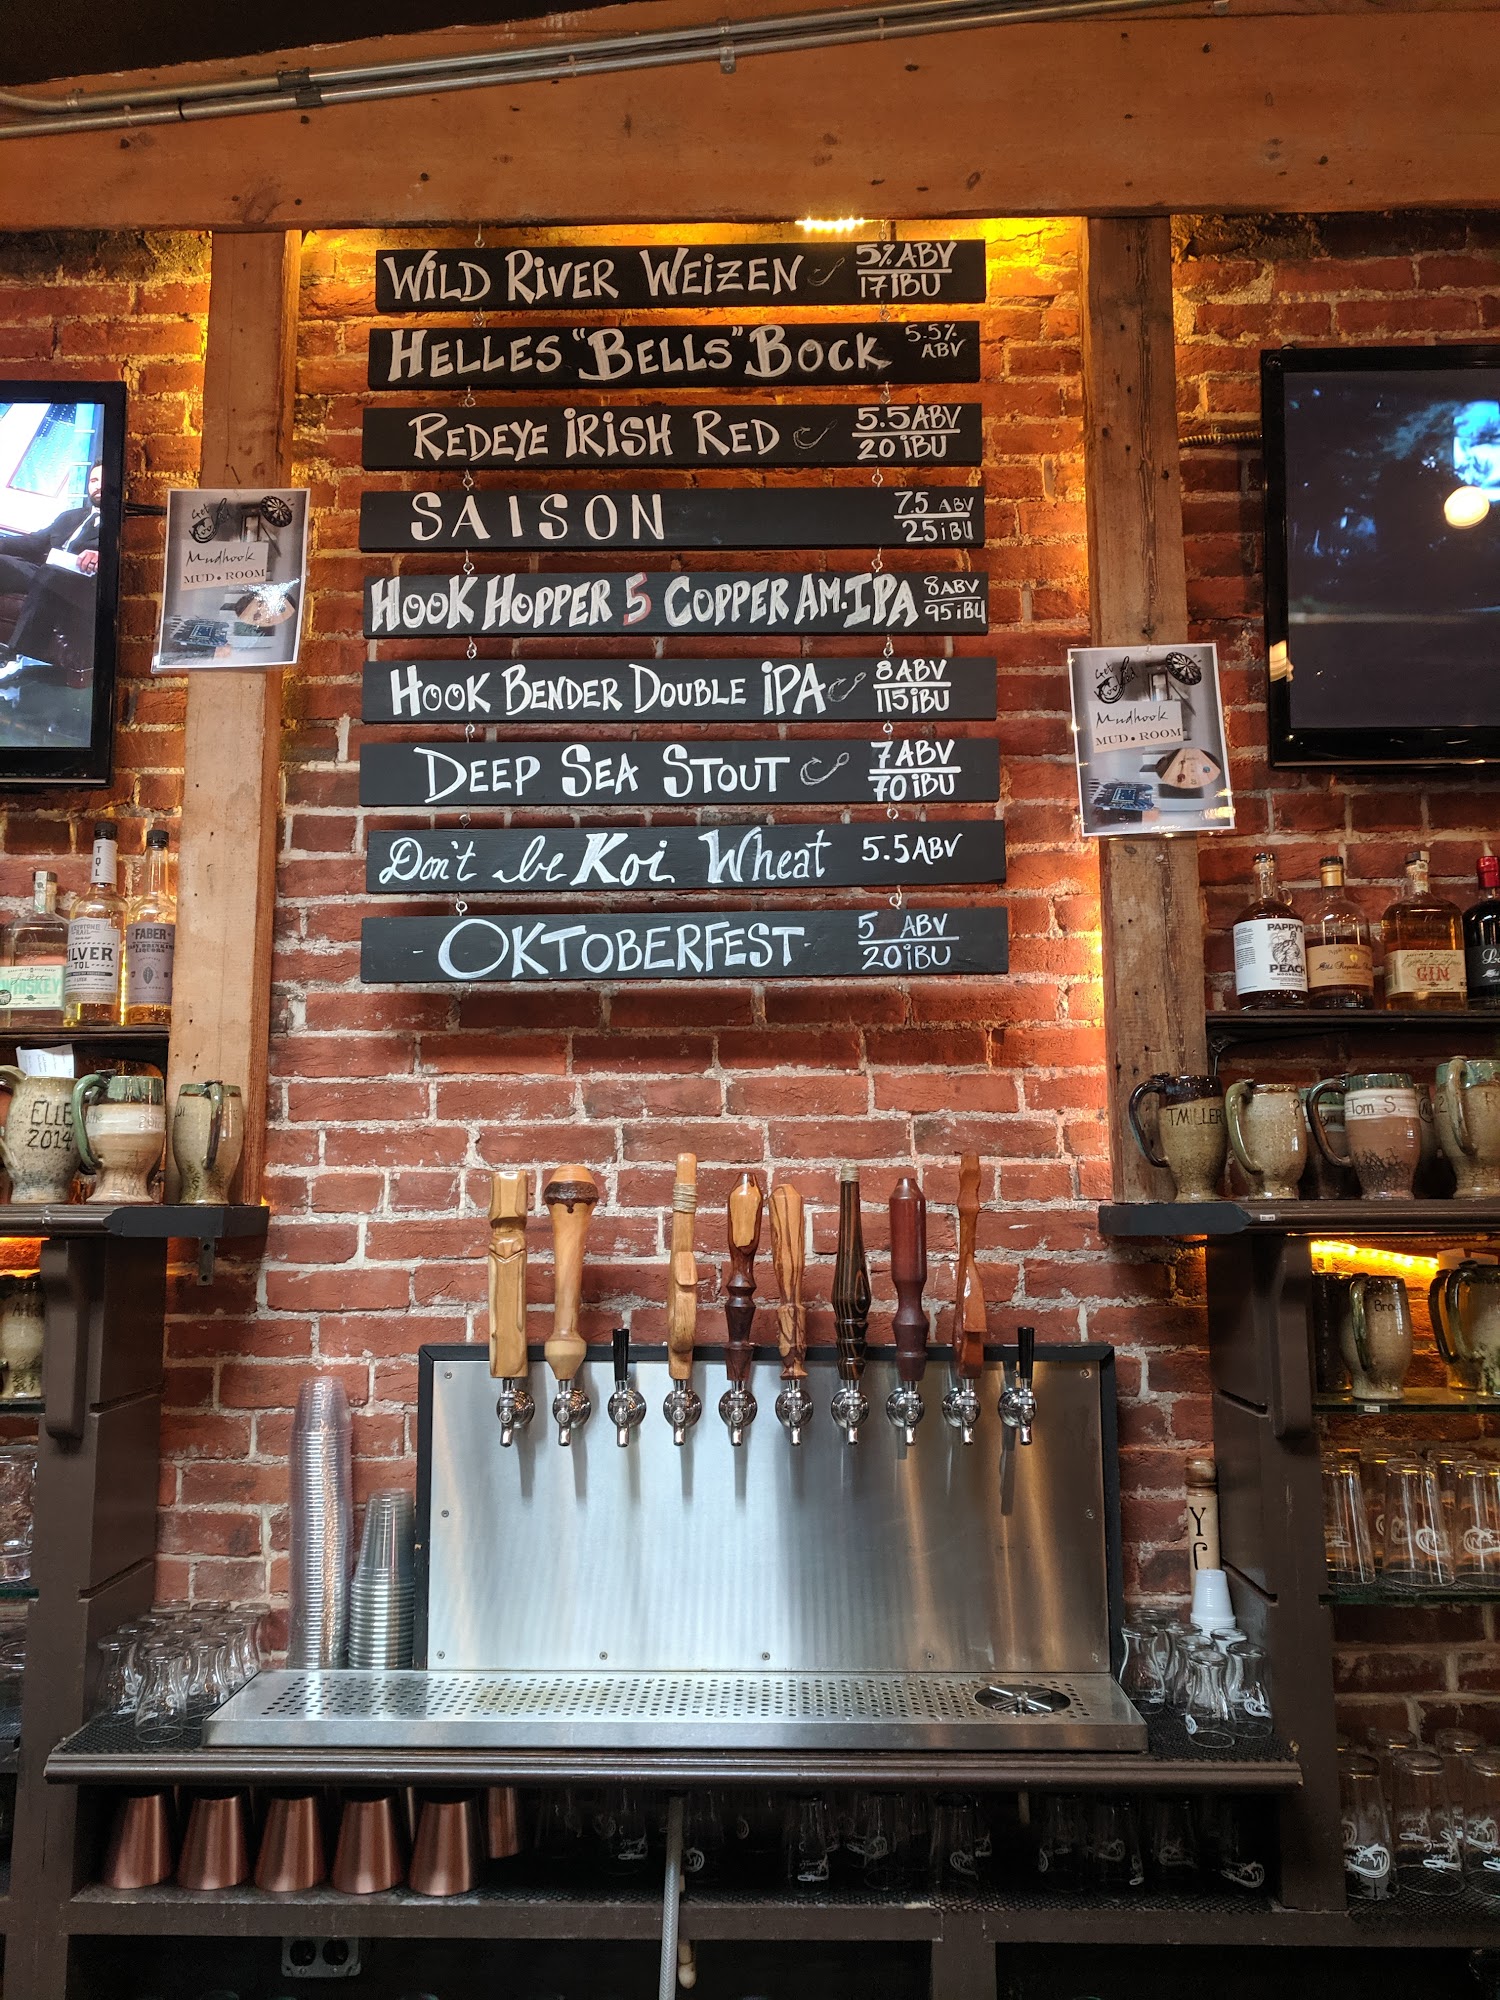 WILD RIVER WEIZEN 5% ABV
17 IBU
HELLES "BELLS" BOCK 5.5%
ABV
REDEYE IRISH RED 5.5 ABV
20 IBU
SAISON 7.5 ABV
25 IBU
HOOK HOPPER 5 COPPER AM. IPA 8 ABV
95 IBU
HOOK BENDER DOUBLE IPA 8 ABV
115 IBU
DEEP SEA STOUT 7 ABV
70 IBU
Don't be Koi Wheat 5.5 ABV
- OKTOBERFEST - 5 ABV
20 IBU
Get
Hooked
Mudhook
MUD • ROOM
Get
Hooked
Mudhook
MUD • ROOM
FABER
WHISKEY
PAPPY'S
PEACH
GIN
ELLE
2014
T MILLER
Tom S.
Y